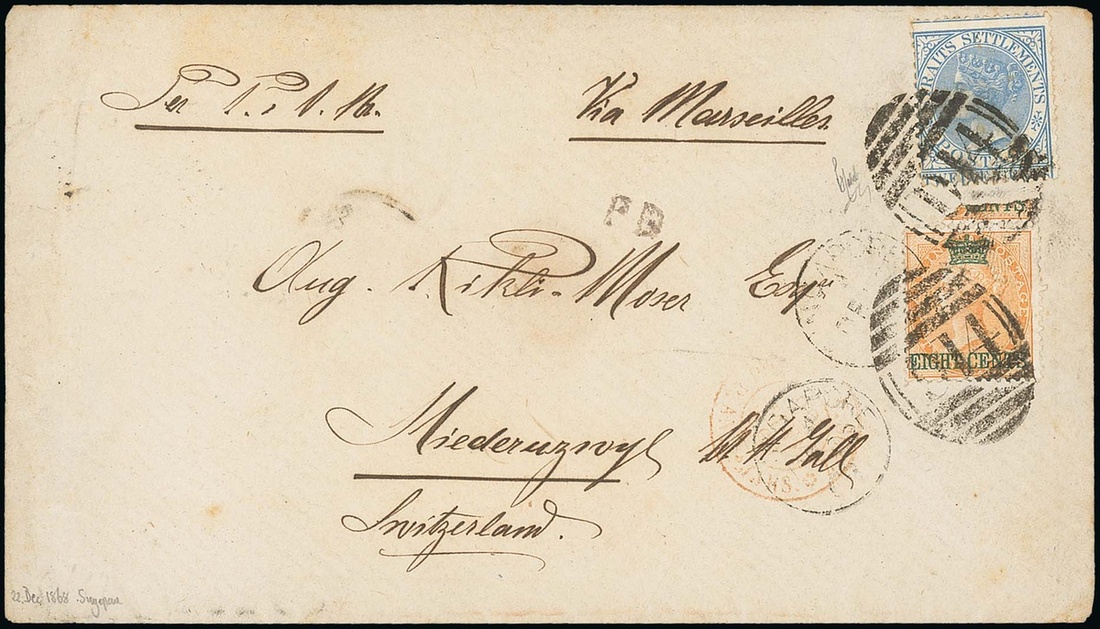 Per P. & O. St.
Via Marseilles
STRAITS SETTLEMENTS
POSTAGE
CENTS
P D
Aug. Rikli-Moser Esqr
POSTAGE
EIGHT CENTS
SINGAPORE
Niederuzwyl Ct St Gall
Switzerland.
22 Dec 1868 Singapour